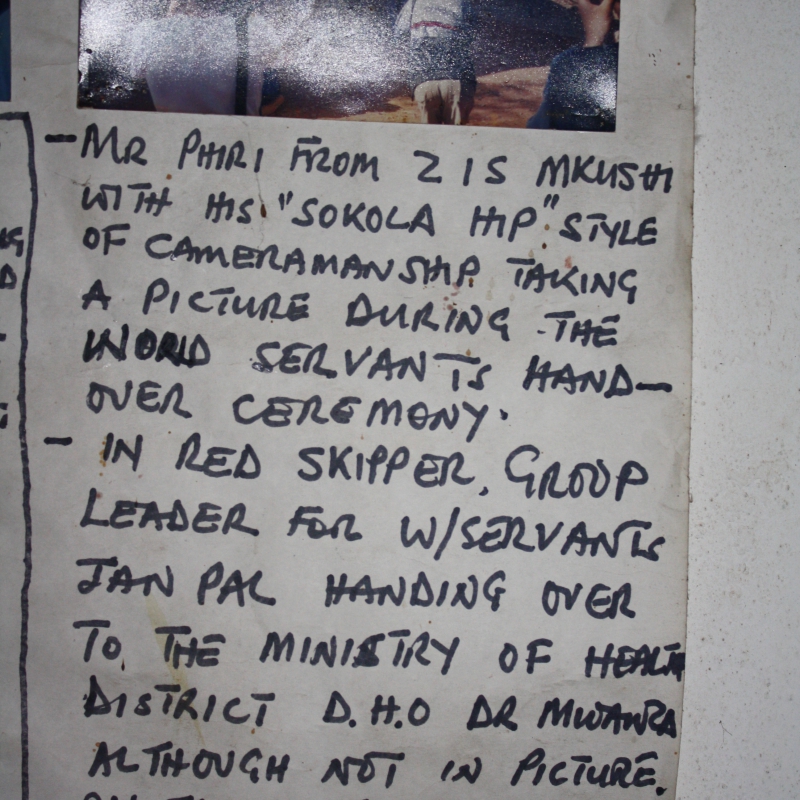 - MR PHIRI FROM ZIS MKUSHI
WITH HIS "SOKOLA HIP" STYLE
OF CAMERAMANSHIP TAKING
A PICTURE DURING THE
WORLD SERVANTS HAND-
OVER CEREMONY.
- IN RED SKIPPER, GROUP
LEADER FOR W/SERVANTS
JAN PAL HANDING OVER
TO THE MINISTRY OF HEALTH
DISTRICT D.H.O DR MWANZA
ALTHOUGH NOT IN PICTURE.